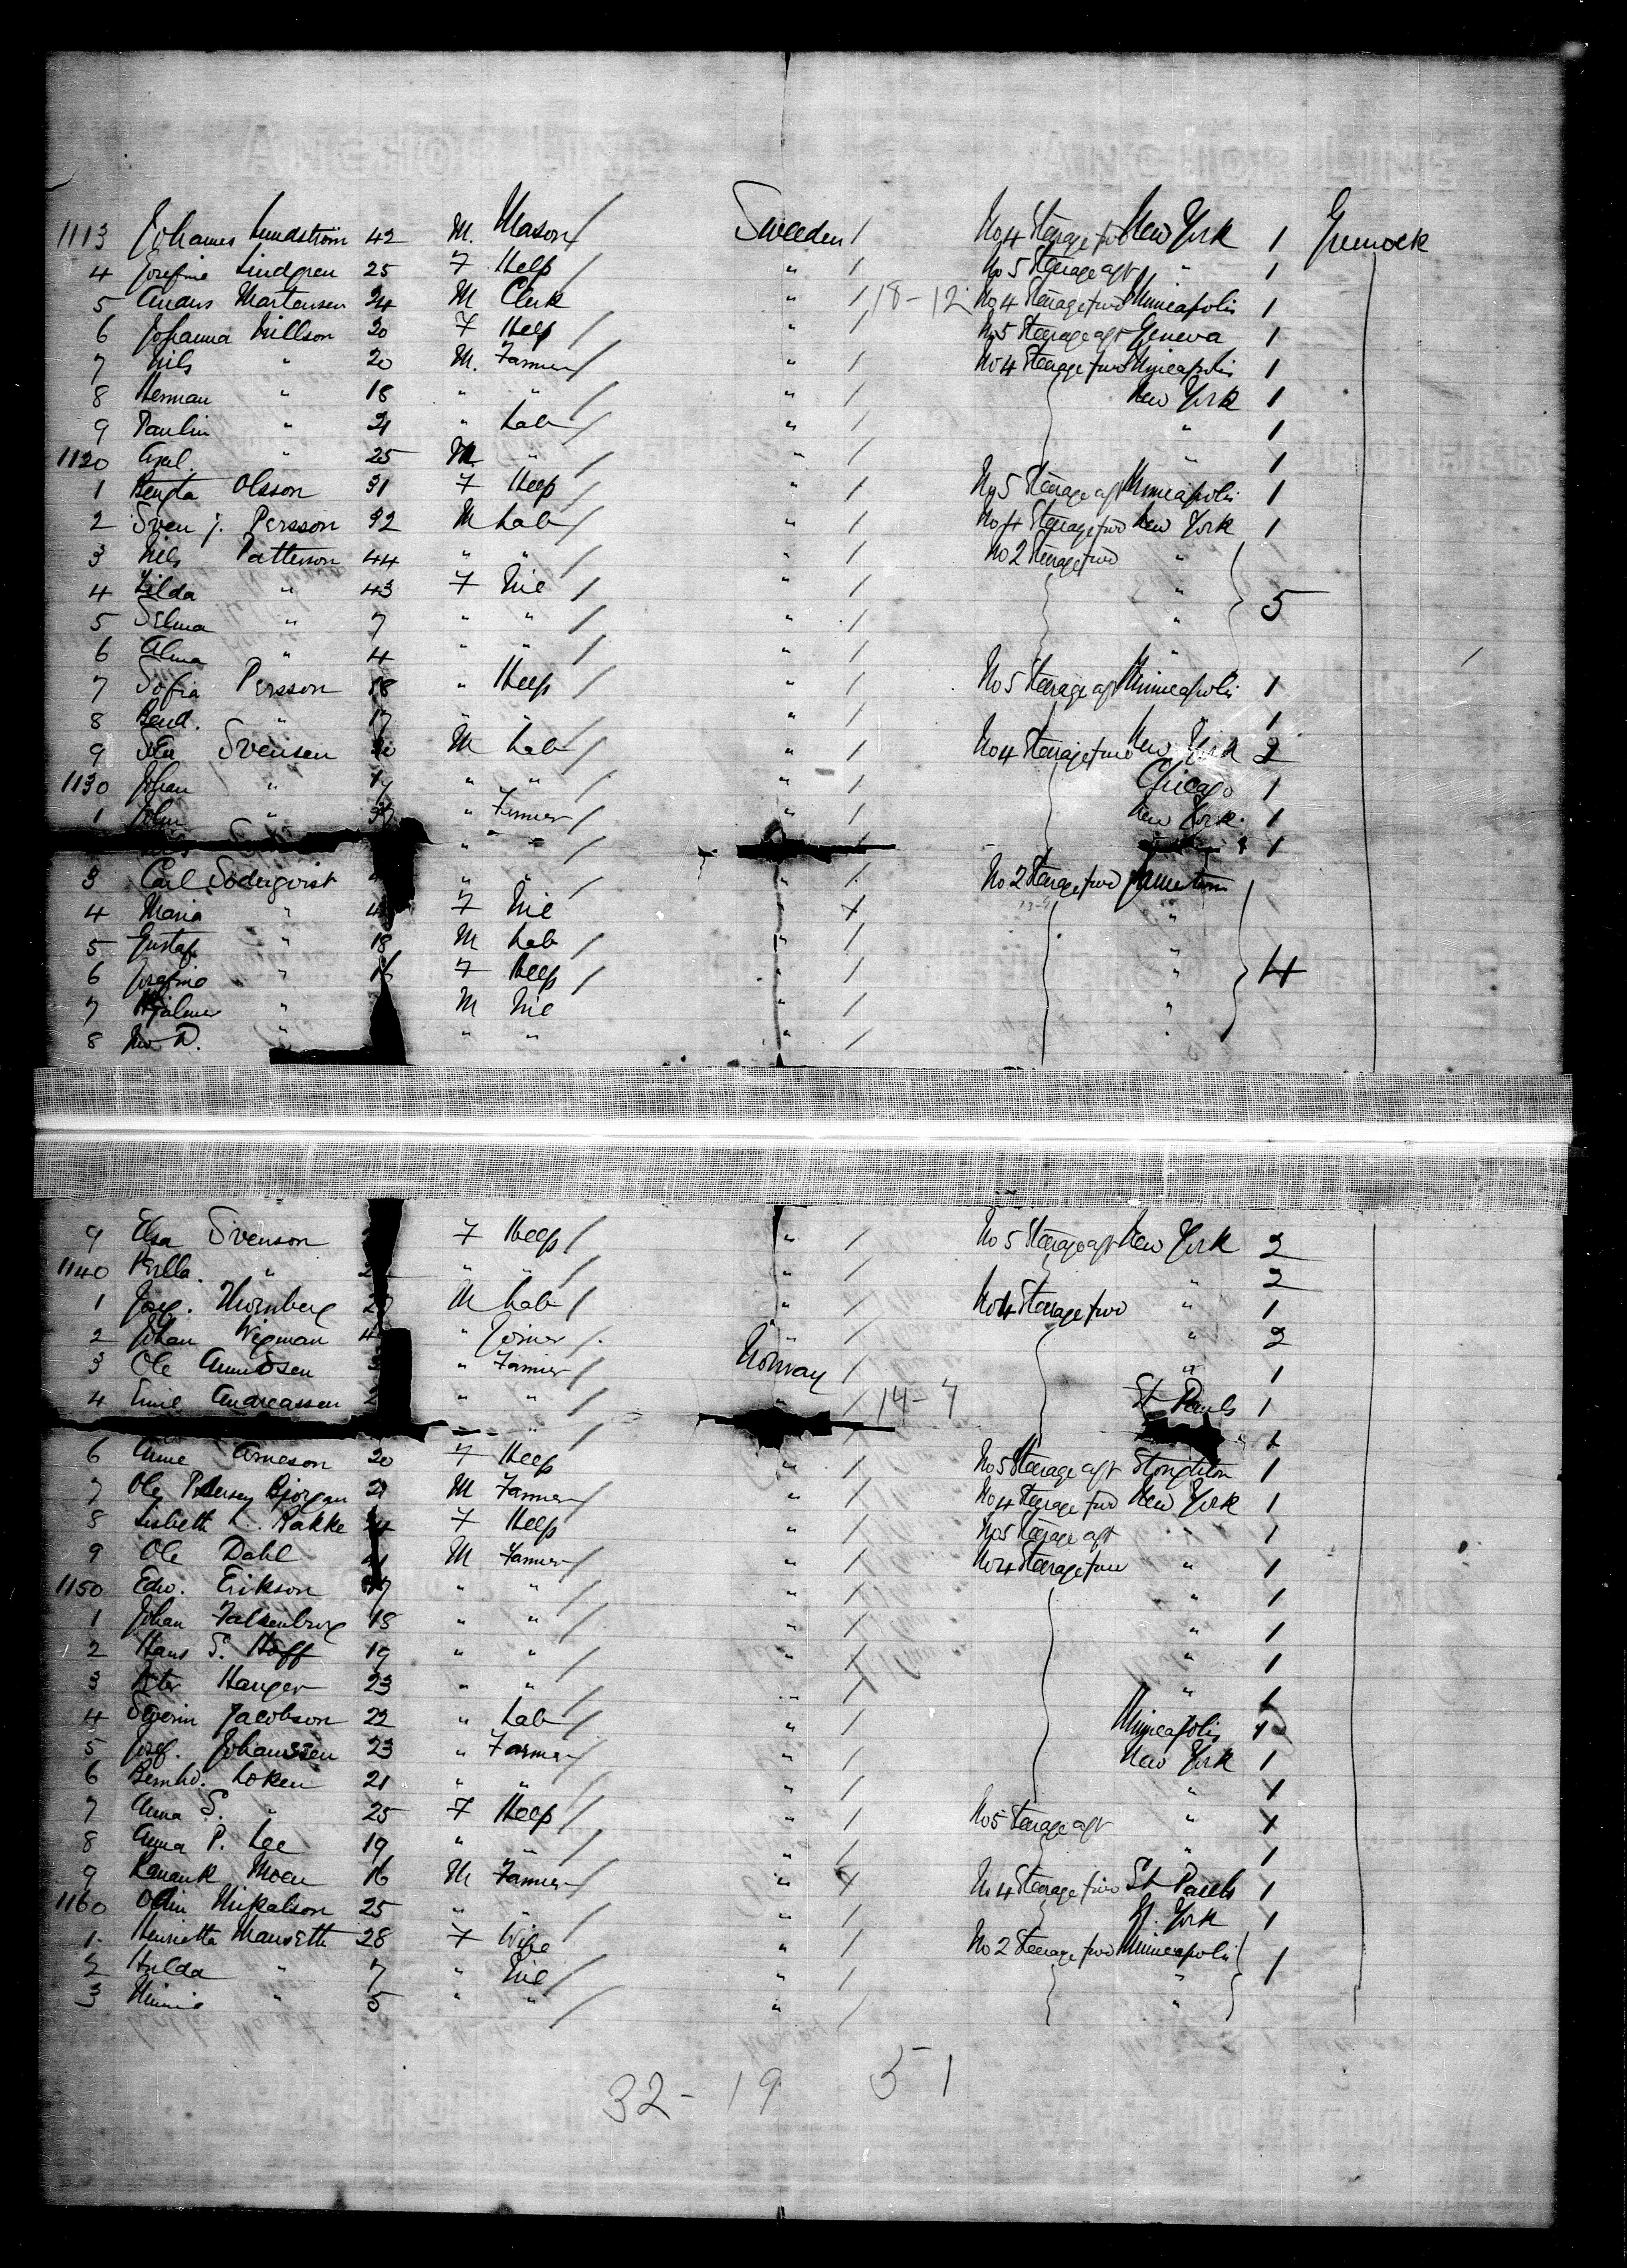 ANCHOR LINE ANCHOR LINE
1113 Johannes Lundstrom 42 M. Mason / Sweden / No 4 Steerage fwd New York 1 Greenock
4 Josefine Lindgren 25 F Help / " / No 5 Steerage aft " 1
5 Anders Martensen 24 M Clerk " / 18-12 No 4 Steerage fwd Mineapolis 1
6 Johanna Nillson 20 F Help / " / No 5 Steerage aft Geneva 1
7 Nils " 20 M. Farmer / " / No 4 Steerage fwd Mineapolis 1
8 Herman " 18 " " / " / New York 1
9 Paulin " 21 " Lab / " / " 1
1120 Axel. " 25 M " / " / " 1
1 Bengta Olsson 31 F Help / " / No 5 Steerage aft Minneapolis 1
2 Sven J. Persson 32 M Lab / " / No 4 Steerage fwd New York 1
3 Nils Patterson 44 " " / " / No 2 Steerage fwd "
4 Hilda " 43 F Nil / " / " 5
5 Selma " 7 " " / " / "
6 Alma " 4 " " / " / " /
7 Sofia Persson 18 " Help / " / No 5 Steerage aft Minneapolis 1
8 Bend. " 17 " " / " / " 1
9 Svensen M Lab / " / No 4 Steerage fwd New York 2
1130 Johan " 19 " " / " / Chicago 1
1 John " " Farmer / " / New York. 1
" " / / 1
3 Carl Soderqvist " " / " / No 2 Steerage fwd Jamestown
4 Maria " F Nil " / "
5 Gustaf " 18 M Lab / " / "
6 Josefine " 16 F Help / " / " 4
7 Hjalmer " M Nil " / "
8 Jno D. " " " " / "
9 Elsa Svenson F Help / " / No 5 Steerage aft New York 2
1140 Pella. " " " / " / " 2
1 Thornberg M Lab / " / No 4 Steerage fwd " 1
2 Johan Wigman " Joiner / " / " 2
3 Ole Amundsen " Farmer / Norway / " 1
4 Emil Andreassen " " / " / 14-7 St Pauls 1
6 Anne Arneson 20 F Help " / No 5 Steerage aft Stoughton 1
7 Ole Pedersen Bjorgan 21 M Farmer / " / No 4 Steerage fwd New York 1
8 Lisbeth L. Rakke F Help / " / No 5 Steerage aft " 1
9 Ole Dahl M Farmer / " / No 4 Steerage fwd " 1
1150 Edw. Erikson " " / " / " 1
1 Johan Falkenburg 18 " " / " / " 1
2 Hans S. Hoff 19 " " / " / " 1
3 Peter Hanger 23 " " / " / " 1
4 Severin Jacobson 22 " Lab / " / Minneapolis 1
5 Josef. Johanssen 23 " Farmer / " / New York 1
6 Bernhd. Loken 21 " " / " / " 1
7 Anna S. " 25 F Help / " / No 5 Steerage aft " 1
8 Anna P. Lee 19 " " / " / " 1
9 Moen 16 M Farmer / " / No 4 Steerage fwd St Pauls 1
1160 Odin Mikalson 25 " " / " / N. York 1
1 Henrietta Manseth 28 F Wife " / No 2 Steerage fwd Minneapolis
2 Hulda " 7 " Nil / " / " 1
3 Minnie " 5 " " / " / "
32-19 51